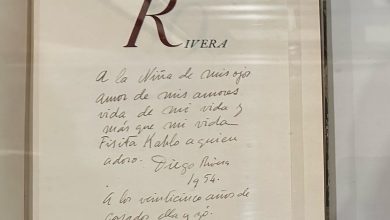 RIVERA
A la Niña de mis ojos
amor de mis amores
vida de mi vida y
más que mi vida
Fisita Kahlo a quien
adoro. Diego Rivera
1954.
A los veinticinco años de
casados ella y yo.